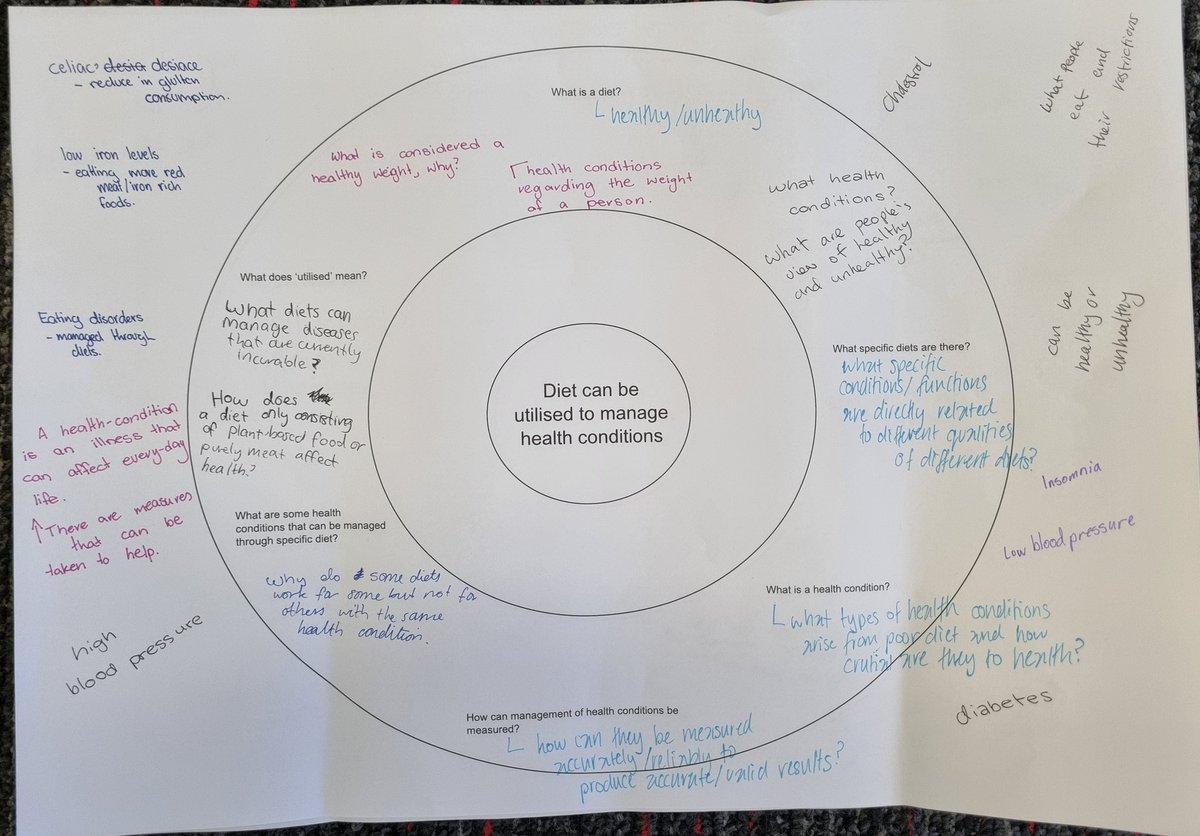 celiac desia desiace
- reduce in glutten
consumption.
low iron levels
- eating more red
meat/iron rich
foods.
Eating disorders
- managed through
diets.
A health-condition
is an illness that
can affect every-day
life.
↑ There are measures
that can be
taken to help.
high
blood pressure
What is a diet?
healthy/unhealthy
What is considered a
healthy weight, why?
health conditions
regarding the weight
of a person.
What does 'utilised' mean?
What diets can
manage diseases
that are currently
incurable?
How does
a diet only consisting
of plant-based food or
purely meat affect
health?
What are some health
conditions that can be managed
through specific diet?
Why do some diets
work for some but not for
others with the same
health condition.
Diet can be
utilised to manage
health conditions
How can management of health conditions be
measured?
how can they be measured
accurately/reliably to
produce accurate/valid results?
what health
conditions?
What are people's
view of healthy
and unhealthy?
What specific diets are there?
what specific
conditions/functions
are directly related
to different qualities
of different diets?
What is a health condition?
what types of health conditions
arise from poor diet and how
crutial are they to health?
Cholestrol
What people
eat and
their restrictions
can be
healthy or
unhealthy
Insomnia
Low blood pressure
diabetes